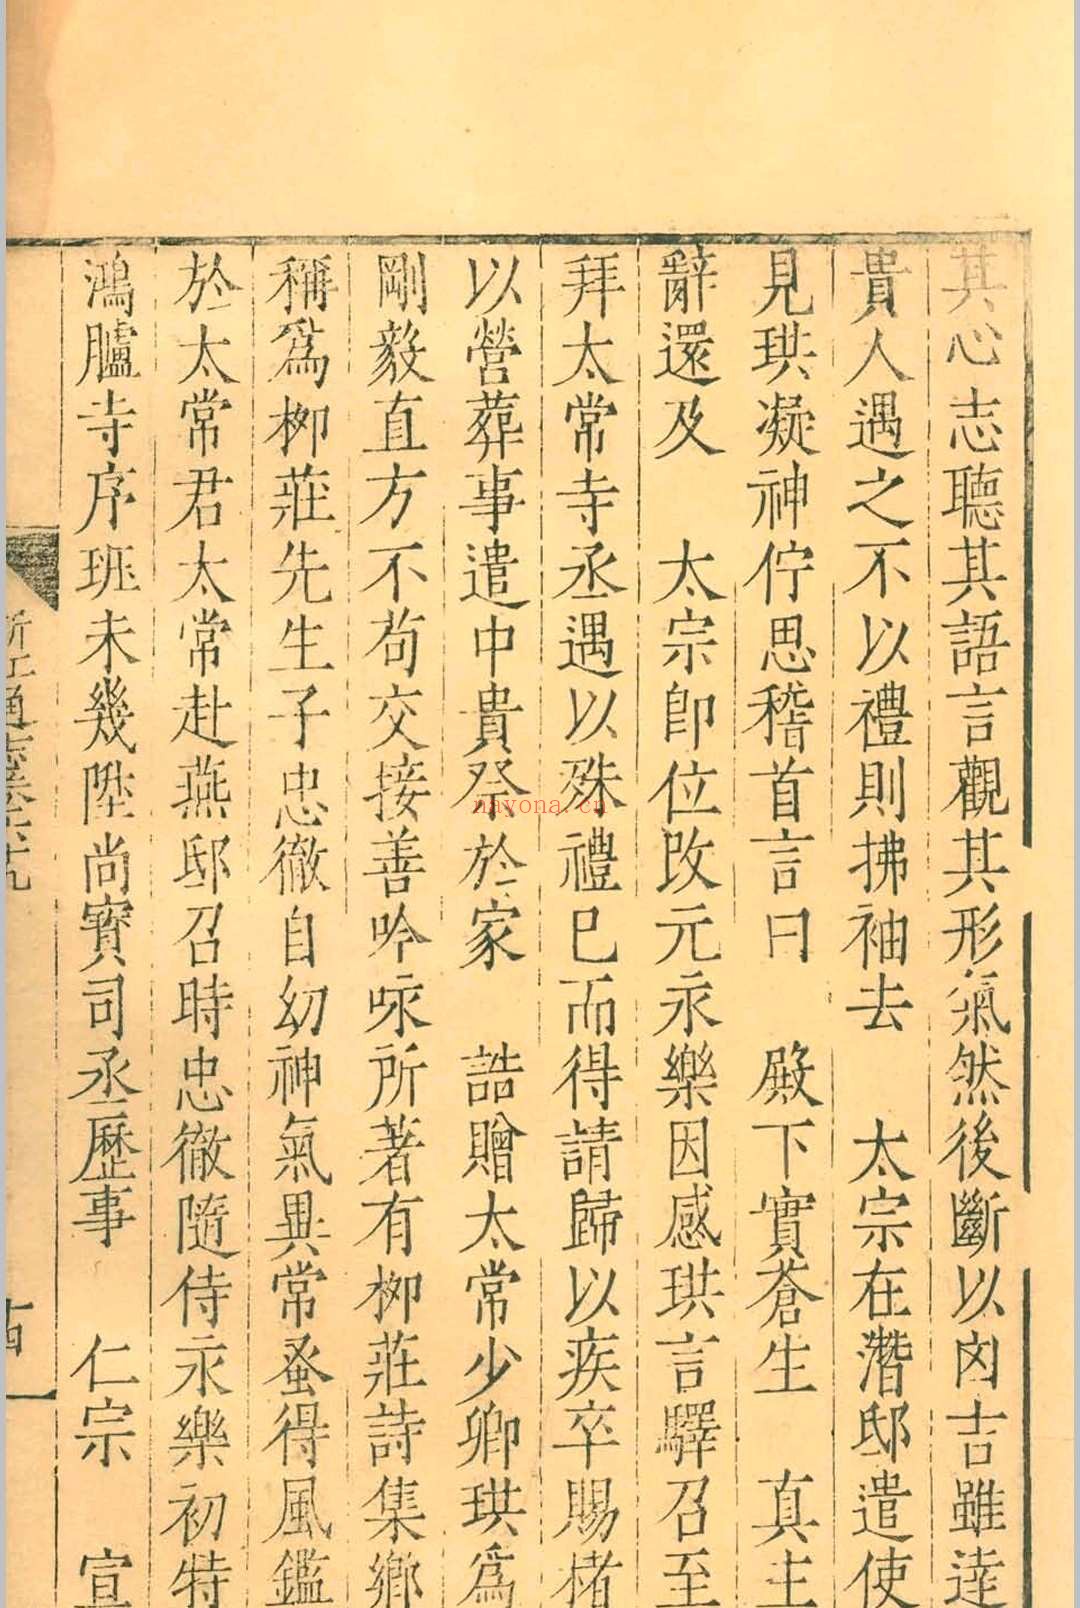 其心志聽其語言觀其形氣然後斷以凶吉雖逹
貴人遇之不以禮則拂袖去　太宗在潛邸遣使
見珙凝神佇思稽首言曰　殿下實蒼生　真主
辭還及　太宗卽位改元永樂因感珙言驛召至
拜太常寺丞遇以殊禮已而得請歸以疾卒賜楮
以營葬事遣中貴祭於家　誥贈太常少卿珙爲
剛毅直方不苟交接善吟咏所著有栁莊詩集鄉
稱爲栁莊先生子忠徹自幼神氣異常蚤得風鑑
於太常君太常赴燕邸召時忠徹隨侍永樂初特
鴻臚寺序班未幾陞尚寶司丞歷事　仁宗　宣
浙江通志卷六十九
nayona.cn